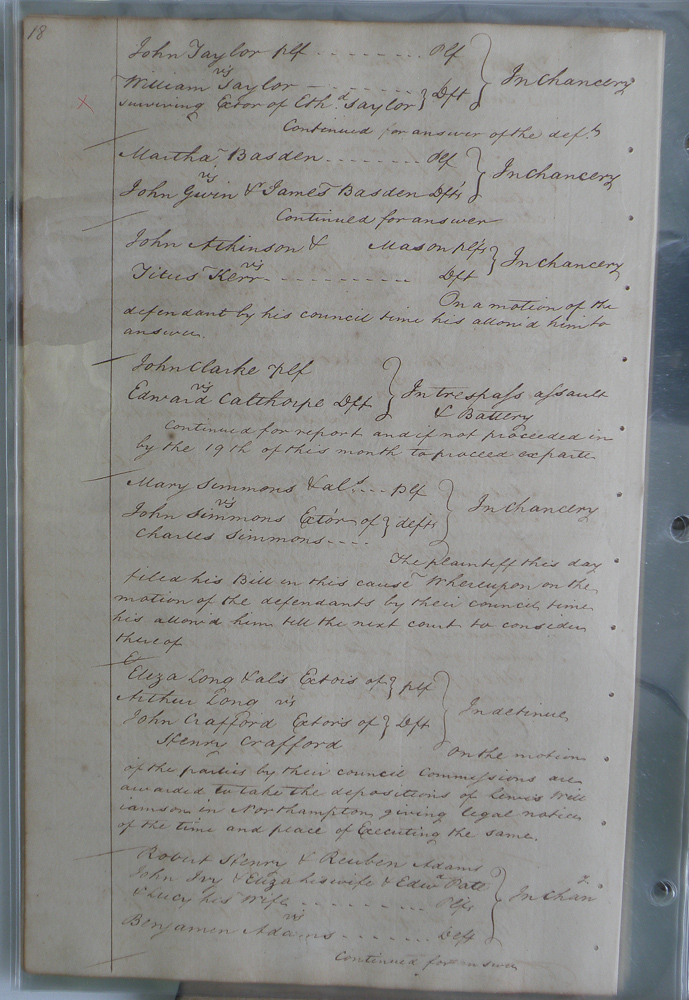 18
John Taylor plf - - - - - - - - Plf } In Chancery
vs
William Taylor - - - - - - - } Dft
surviving Extor of Eth.d Taylor
Continued for answer of the deft
Martha Basden - - - - - - - Plf } In Chancery
vs
John Gwin & James Basden Dfts
Continued for answer
John Atkinson & Mason plfs } In Chancery
vs
Titus Kerr - - - - - - - - - - Dft
On a motion of the
defendant by his council time his allow'd him to
answer.
John Clarke Plf
vs
Edward Calthorpe Dft } In trespass assault
& Battery
Continued for report and if not proceeded in
by the 19th of this month to proceed exparte
Mary Simmons & als - - - Plf } In Chancery
vs
John Simmons Extor of } defts
Charles Simmons - - - -
The plaintiff this day
filed his Bill in this cause Whereupon on the
motion of the defendants by their council time
his allow'd him till the next court to consider
thereof
Eliza Long & als Extois of } plf
Arthur Long vs } In detinue
John Crafford Extors of } Dft
Henry Crafford
On the motion
of the parties by their council Commissions are
awarded to take the depositions of Lewis Will
iamson in Northampton giving legal notice
of the time and place of Executing the same
Robert Henry & Reuben Adams
John Ivy & Eliza his wife & Edwd Pate
& Lucy his Wife - - - - - - - - Plfs } In Chany
vs
Benjamen Adams - - - - - - - Deft
Continued for answer